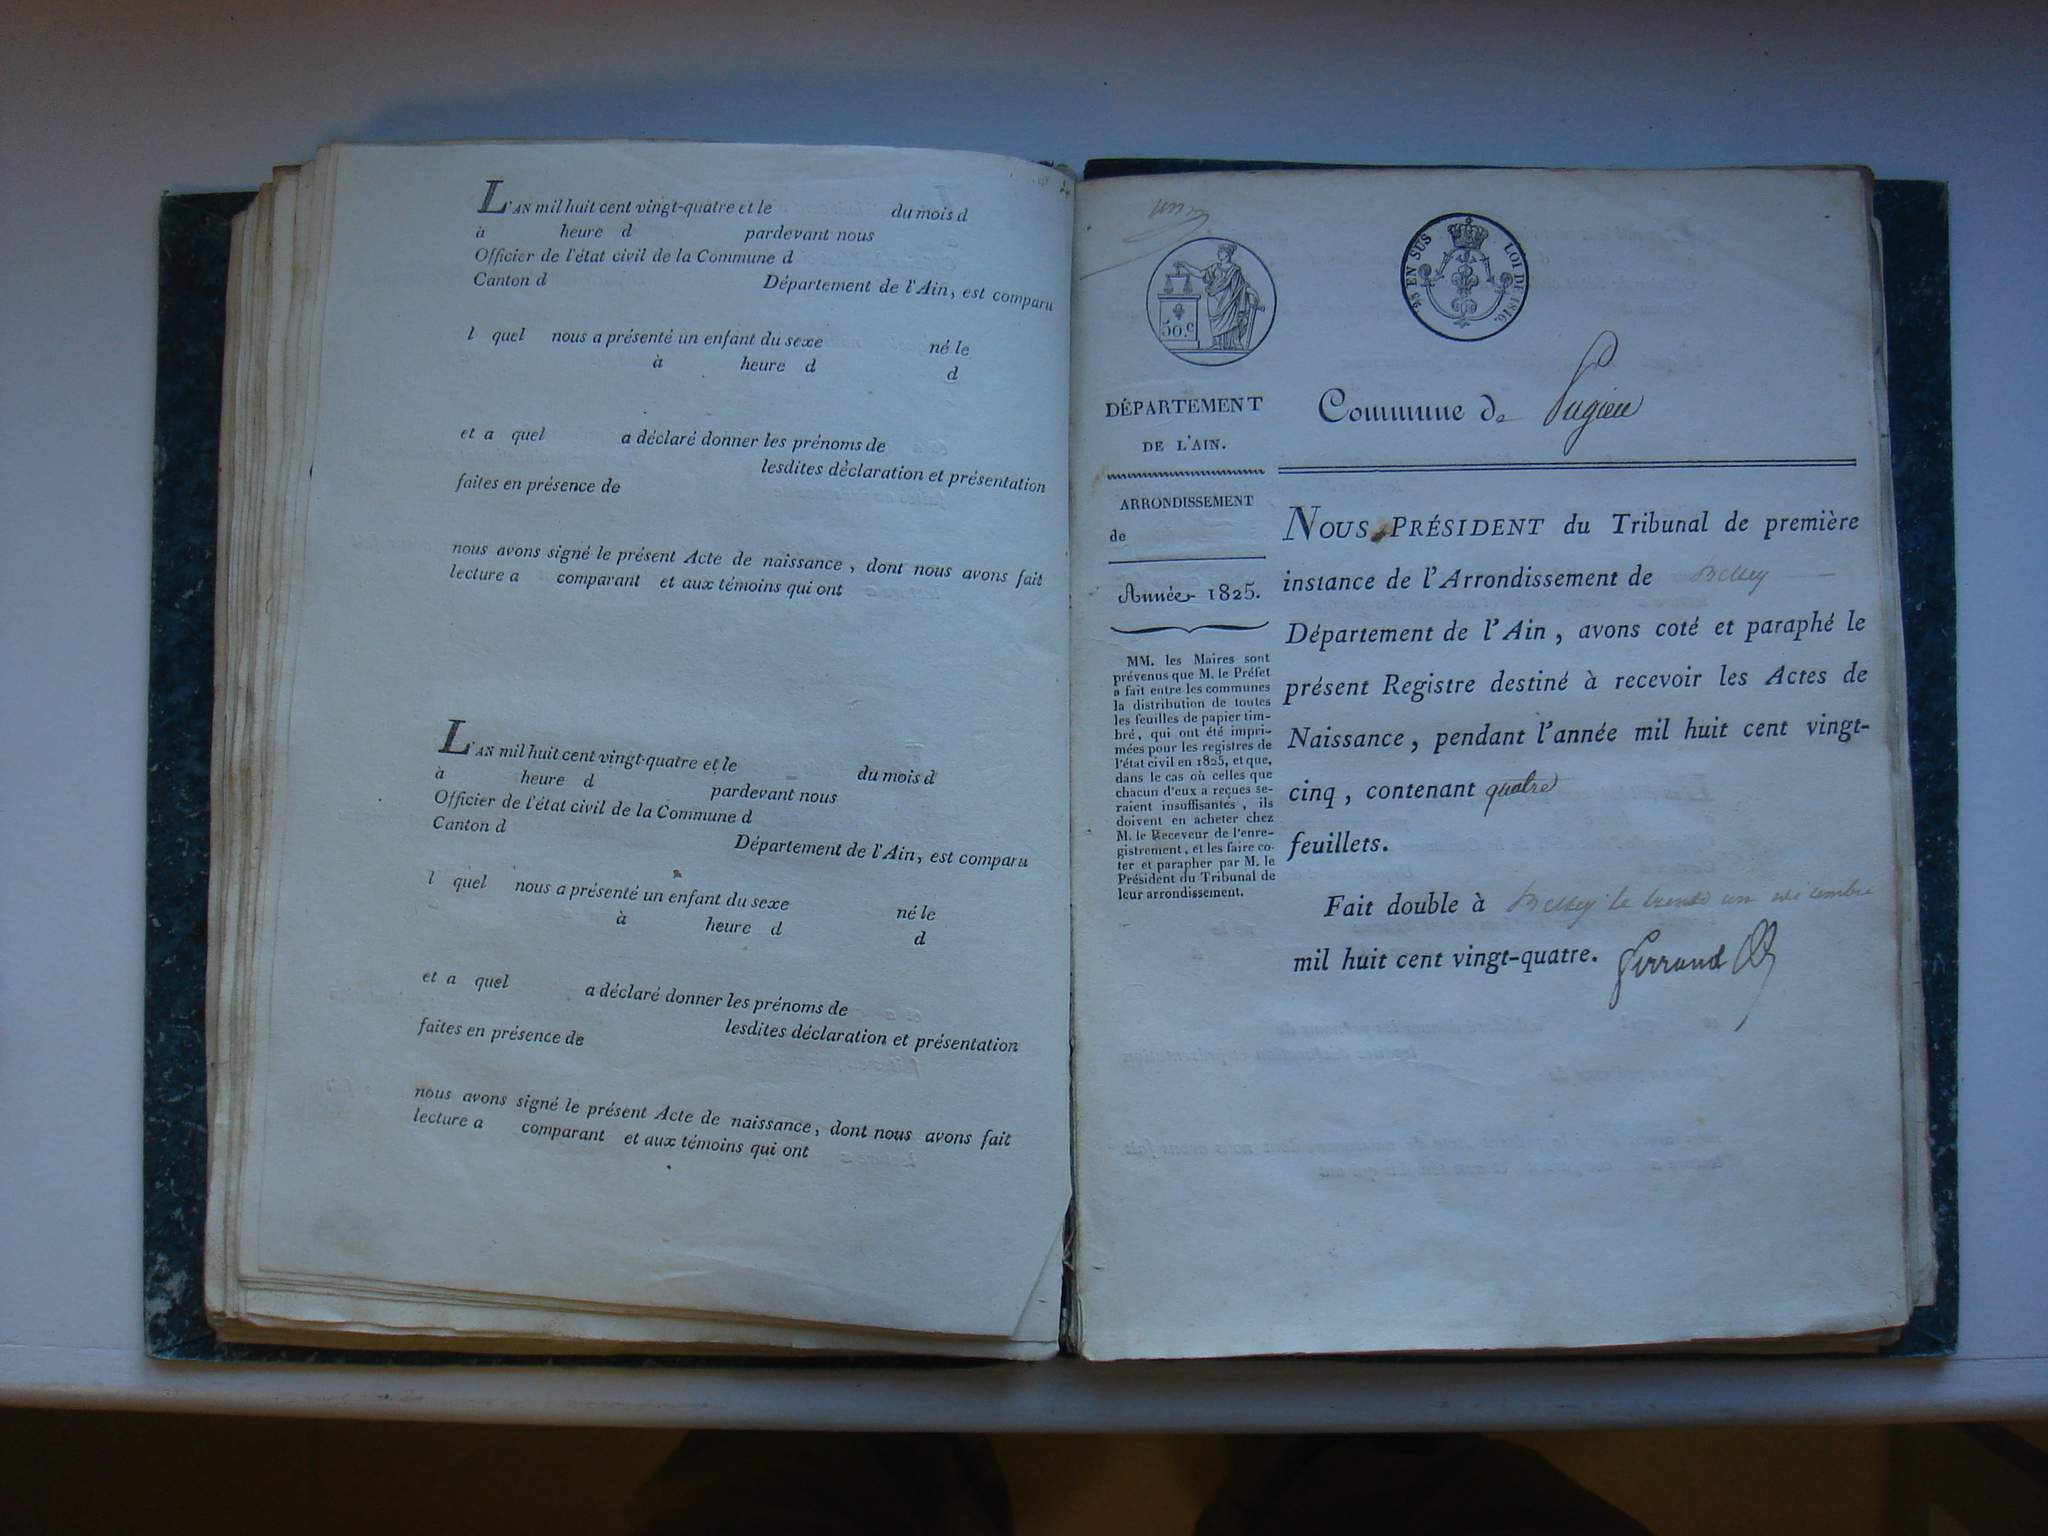 L'AN mil huit cent vingt-quatre et le du mois d
à heure d pardevant nous
Officier de l'état civil de la Commune d
Canton d Département de l'Ain, est comparu
l quel nous a présenté un enfant du sexe né le
à heure d d
et a quel a déclaré donner les prénoms de
lesdites déclaration et présentation
faites en présence de
nous avons signé le présent Acte de naissance, dont nous avons fait
lecture a comparant et aux témoins qui ont
L'AN mil huit cent vingt-quatre et le du mois d
à heure d pardevant nous
Officier de l'état civil de la Commune d
Canton d Département de l'Ain, est comparu
l quel nous a présenté un enfant du sexe né le
à heure d d
et a quel a déclaré donner les prénoms de
lesdites déclaration et présentation
faites en présence de
nous avons signé le présent Acte de naissance, dont nous avons fait
lecture a comparant et aux témoins qui ont
50.c
EN SUS LOI DE 1816.
DÉPARTEMENT
DE L'AIN.
ARRONDISSEMENT
de
Année 1825.
MM. les Maires sont
prévenus que M. le Préfet
a fait entre les communes
la distribution de toutes
les feuilles de papier tim-
bré, qui ont été impri-
mées pour les registres de
l'état civil en 1825, et que,
dans le cas où celles que
chacun d'eux a reçues se-
raient insuffisantes, ils
doivent en acheter chez
M. le Receveur de l'enre-
gistrement, et les faire co-
ter et parapher par M. le
Président du Tribunal de
leur arrondissement.
Commune de Pugieu
NOUS PRÉSIDENT du Tribunal de première
instance de l'Arrondissement de Belley
Département de l'Ain, avons coté et paraphé le
présent Registre destiné à recevoir les Actes de
Naissance, pendant l'année mil huit cent vingt-
cinq, contenant quatre
feuillets.
Fait double à Belley le trente un décembre
mil huit cent vingt-quatre.